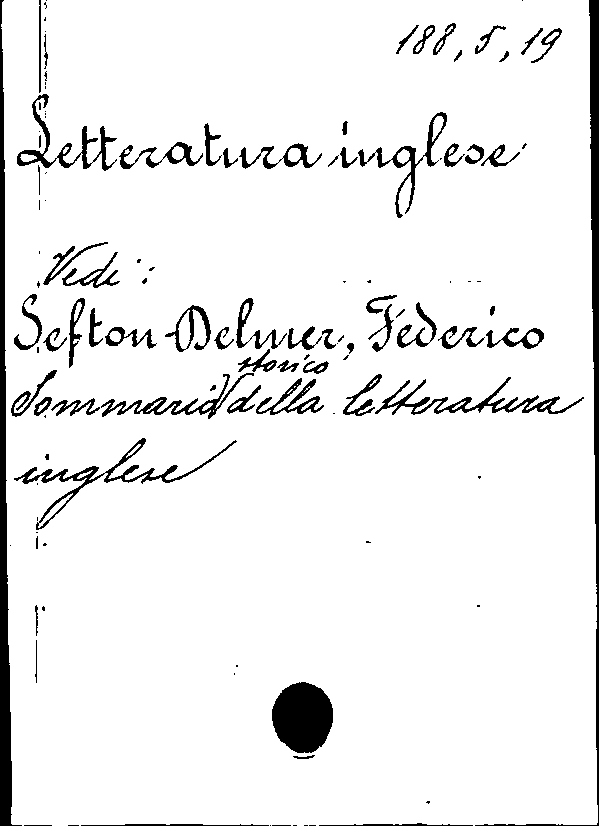 188, 5, 19
Letteratura inglese
Vedi:
Sefton-Delmer, Federico
Sommario storico della letteratura
inglese